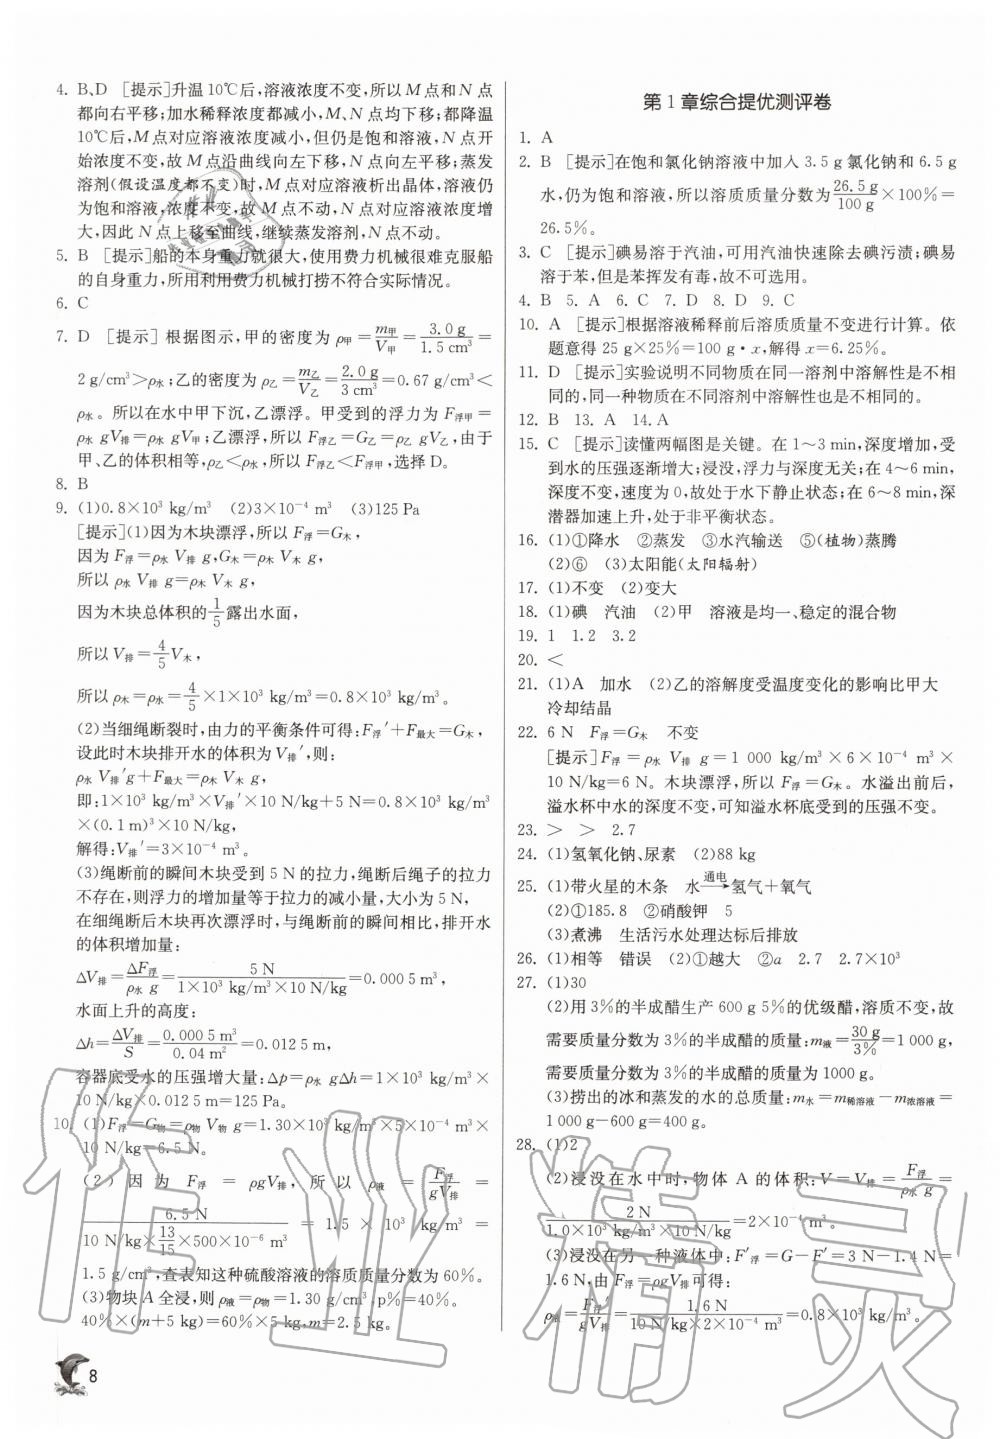 4. B、D [提示]升温10℃后,溶液浓度不变,所以M点和N点
都向右平移;加水稀释浓度都减小,M、N点均下移;都降温
10℃后,M点对应溶液浓度减小,但仍是饱和溶液,N点开
始浓度不变,故M点沿曲线向左下移,N点向左平移;蒸发
溶剂(假设温度都不变)时,M点对应溶液析出晶体,溶液仍
为饱和溶液,浓度不变,故M点不动,N点对应溶液浓度增
大,因此N点上移至曲线,继续蒸发溶剂,N点不动。
5. B [提示]船的本身重力就很大,使用费力机械很难克服船
的自身重力,所用利用费力机械打捞不符合实际情况。
6. C
7. D [提示] 根据图示,甲的密度为 ρ甲=m甲/V甲=3.0 g/1.5 cm³=
2 g/cm³>ρ水;乙的密度为ρ乙=m乙/V乙=2.0 g/3 cm³=0.67 g/cm³<
ρ水。所以在水中甲下沉,乙漂浮。甲受到的浮力为F浮甲=
ρ水 gV排=ρ水 gV甲;乙漂浮,所以F浮乙=G乙=ρ乙 gV乙,由于
甲、乙的体积相等,ρ乙<ρ水,所以F浮乙<F浮甲,选择D。
8. B
9. (1)0.8×10³ kg/m³ (2)3×10⁻⁴ m³ (3)125 Pa
[提示](1)因为木块漂浮,所以F浮=G木,
因为F浮=ρ水 V排 g,G木=ρ木 V木 g,
所以ρ水 V排 g=ρ木 V木 g,
因为木块总体积的1/5露出水面,
所以V排=4/5V木,
所以ρ木=ρ水=4/5×1×10³ kg/m³=0.8×10³ kg/m³。
(2)当细绳断裂时,由力的平衡条件可得:F浮′+F最大=G木,
设此时木块排开水的体积为V排′,则:
ρ水 V排′g+F最大=ρ木 V木 g,
即:1×10³ kg/m³×V排′×10 N/kg+5 N=0.8×10³ kg/m³
×(0.1 m)³×10 N/kg,
解得:V排′=3×10⁻⁴ m³。
(3)绳断前的瞬间木块受到5 N的拉力,绳断后绳子的拉力
不存在,则浮力的增加量等于拉力的减小量,大小为5 N,
在细绳断后木块再次漂浮时,与绳断前的瞬间相比,排开水
的体积增加量:
ΔV排=ΔF浮/ρ水 g=5 N/1×10³ kg/m³×10 N/kg=0.000 5 m³,
水面上升的高度:
Δh=ΔV排/S=0.000 5 m³/0.04 m²=0.012 5 m,
容器底受水的压强增大量:Δp=ρ水 gΔh=1×10³ kg/m³×
10 N/kg×0.012 5 m=125 Pa。
10. (1)F浮=G物=ρ物 V物 g=1.30×10³ kg/m³×5×10⁻⁴ m³×
10 N/kg=6.5 N。
(2) 因为 F浮 = ρgV排, 所以 ρ液 = F浮/gV排 =
6.5 N/10 N/kg×13/15×500×10⁻⁶ m³ = 1.5 × 10³ kg/m³ =
1.5 g/cm³,查表知这种硫酸溶液的溶质质量分数为60%。
(3)物块A全浸,则ρ液=ρ物=1.30 g/cm³,p%=40%。
40%×(m+5 kg)=60%×5 kg,m=2.5 kg。
8
第1章综合提优测评卷
1. A
2. B [提示]在饱和氯化钠溶液中加入3.5 g氯化钠和6.5 g
水,仍为饱和溶液,所以溶质质量分数为26.5 g/100 g×100%=
26.5%。
3. C [提示]碘易溶于汽油,可用汽油快速除去碘污渍;碘易
溶于苯,但是苯挥发有毒,故不可选用。
4. B 5. A 6. C 7. D 8. D 9. C
10. A [提示]根据溶液稀释前后溶质质量不变进行计算。依
题意得25 g×25%=100 g·x,解得x=6.25%。
11. D [提示]实验说明不同物质在同一溶剂中溶解性是不相
同的,同一种物质在不同溶剂中溶解性也是不相同的。
12. B 13. A 14. A
15. C [提示]读懂两幅图是关键。在1~3 min,深度增加,受
到水的压强逐渐增大;浸没,浮力与深度无关;在4~6 min,
深度不变,速度为0,故处于水下静止状态;在6~8 min,深
潜器加速上升,处于非平衡状态。
16. (1)①降水 ②蒸发 ③水汽输送 ⑤(植物)蒸腾
(2)⑥ (3)太阳能(太阳辐射)
17. (1)不变 (2)变大
18. (1)碘 汽油 (2)甲 溶液是均一、稳定的混合物
19. 1 1.2 3.2
20. <
21. (1)A 加水 (2)乙的溶解度受温度变化的影响比甲大
冷却结晶
22. 6 N F浮=G木 不变
[提示]F浮=ρ水 V排 g=1 000 kg/m³×6×10⁻⁴ m³×
10 N/kg=6 N。木块漂浮,所以F浮=G木。水溢出前后,
溢水杯中水的深度不变,可知溢水杯底受到的压强不变。
23. > > 2.7
24. (1)氢氧化钠、尿素 (2)88 kg
25. (1)带火星的木条 水 通电→氢气+氧气
(2)①185.8 ②硝酸钾 5
(3)煮沸 生活污水处理达标后排放
26. (1)相等 错误 (2)①越大 ②a 2.7 2.7×10³
27. (1)30
(2)用3%的半成醋生产600 g 5%的优级醋,溶质不变,故
需要质量分数为3%的半成醋的质量:m液=30 g/3%=1 000 g,
需要质量分数为3%的半成醋的质量为1000 g。
(3)捞出的冰和蒸发的水的总质量:m水=m稀溶液-m浓溶液=
1 000 g-600 g=400 g。
28. (1)2
(2)浸没在水中时,物体A的体积:V=V排=F浮/ρ水 g=
2 N/1.0×10³ kg/m³×10 N/kg=2×10⁻⁴ m³。
(3)浸没在另一种液体中:F′浮=G-F′=3 N-1.4 N=
1.6 N,由F浮=ρgV排可得:
ρ液=F浮′/gV排=1.6 N/10 N/kg×2×10⁻⁴ m³=0.8×10³ kg/m³。
作业精灵